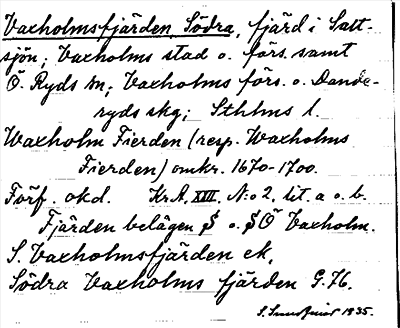 Vaxholmsfjärden, Södra, fjärd i Salt-
sjön; Vaxholms stad o. förs. samt
Ö. Ryds sn; Vaxholms förs. o. Dande-
ryds skg; Sthlms l.
Waxholm Fierden (resp. Waxholms
Fierden) omkr. 1670-1700.
Förf. okd. Kr.A. XVII. N:o 2, lit. a o. b.
Fjärden belägen S o. SÖ Vaxholm.
S. Vaxholmsfjärden ek,
Södra Vaxholms fjärden G. 76.
1935.